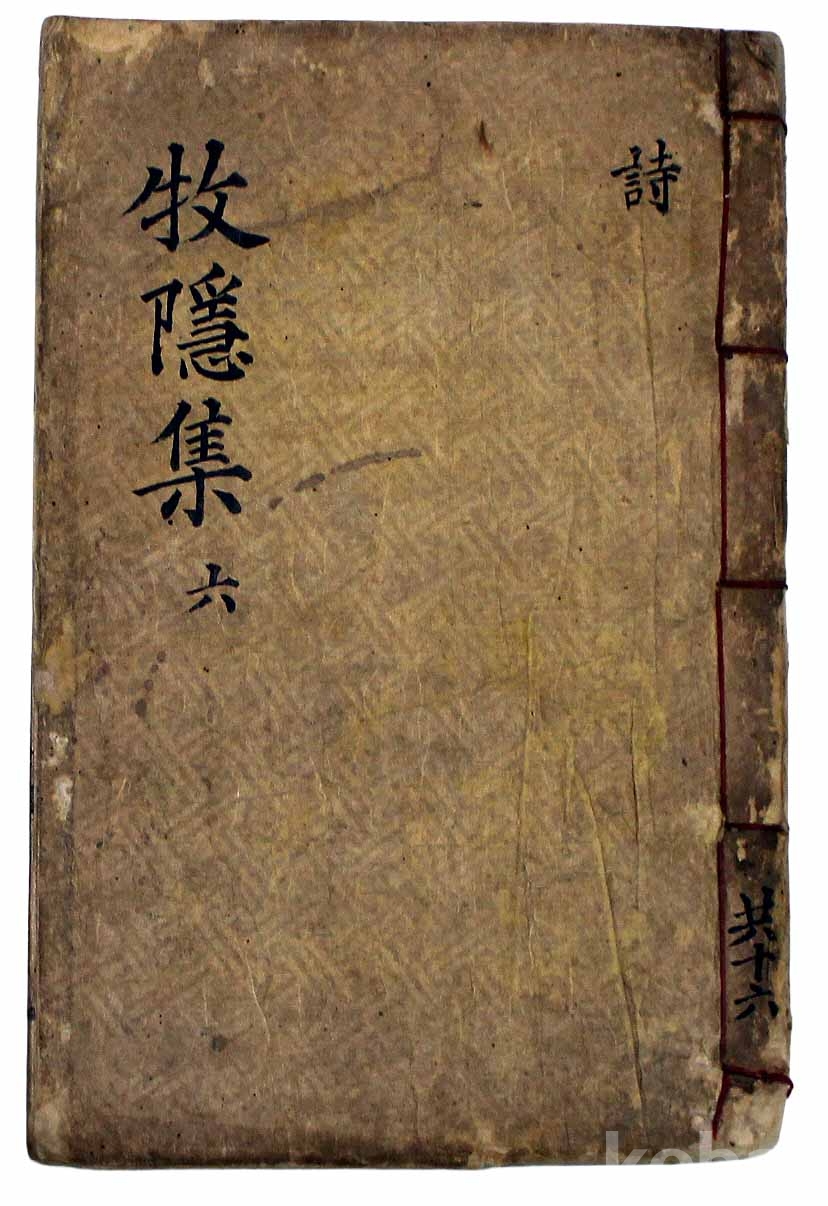 詩
牧隱集 六
共十六